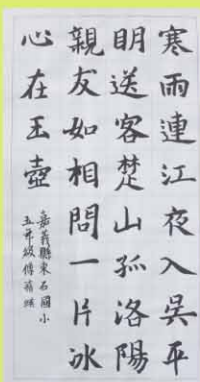 寒雨連江夜入吳平
明送客楚山孤洛陽
親友如相問一片冰
心在玉壺
嘉義縣東石國小
五年級傅